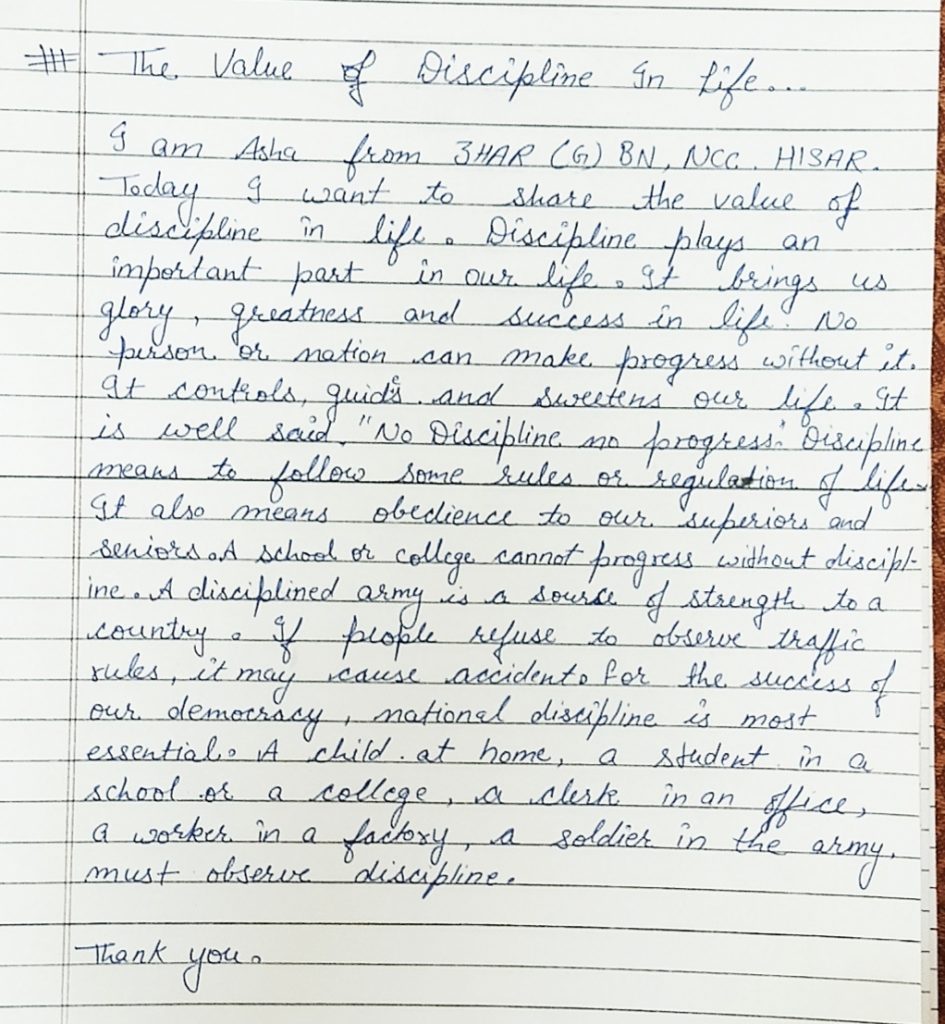 The Value of Discipline In Life...
I am Asha from 3HAR (G) BN, NCC. HISAR.
Today I want to share the value of
discipline in life. Discipline plays an
important part in our life. It brings us
glory, greatness and success in life. No
person or nation can make progress without it.
It controls, guids and sweetens our life. It
is well said. "No Discipline no progress." Discipline
means to follow some rules or regulation of life.
It also means obedience to our superiors and
seniors. A school or college cannot progress without discipl-
ine. A disciplined army is a source of strength to a
country. If people refuse to observe traffic
rules, it may cause accident. For the success of
our democracy, national discipline is most
essential. A child at home, a student in a
school or a college, a clerk in an office,
a worker in a factory, a soldier in the army,
must observe discipline.
Thank you.